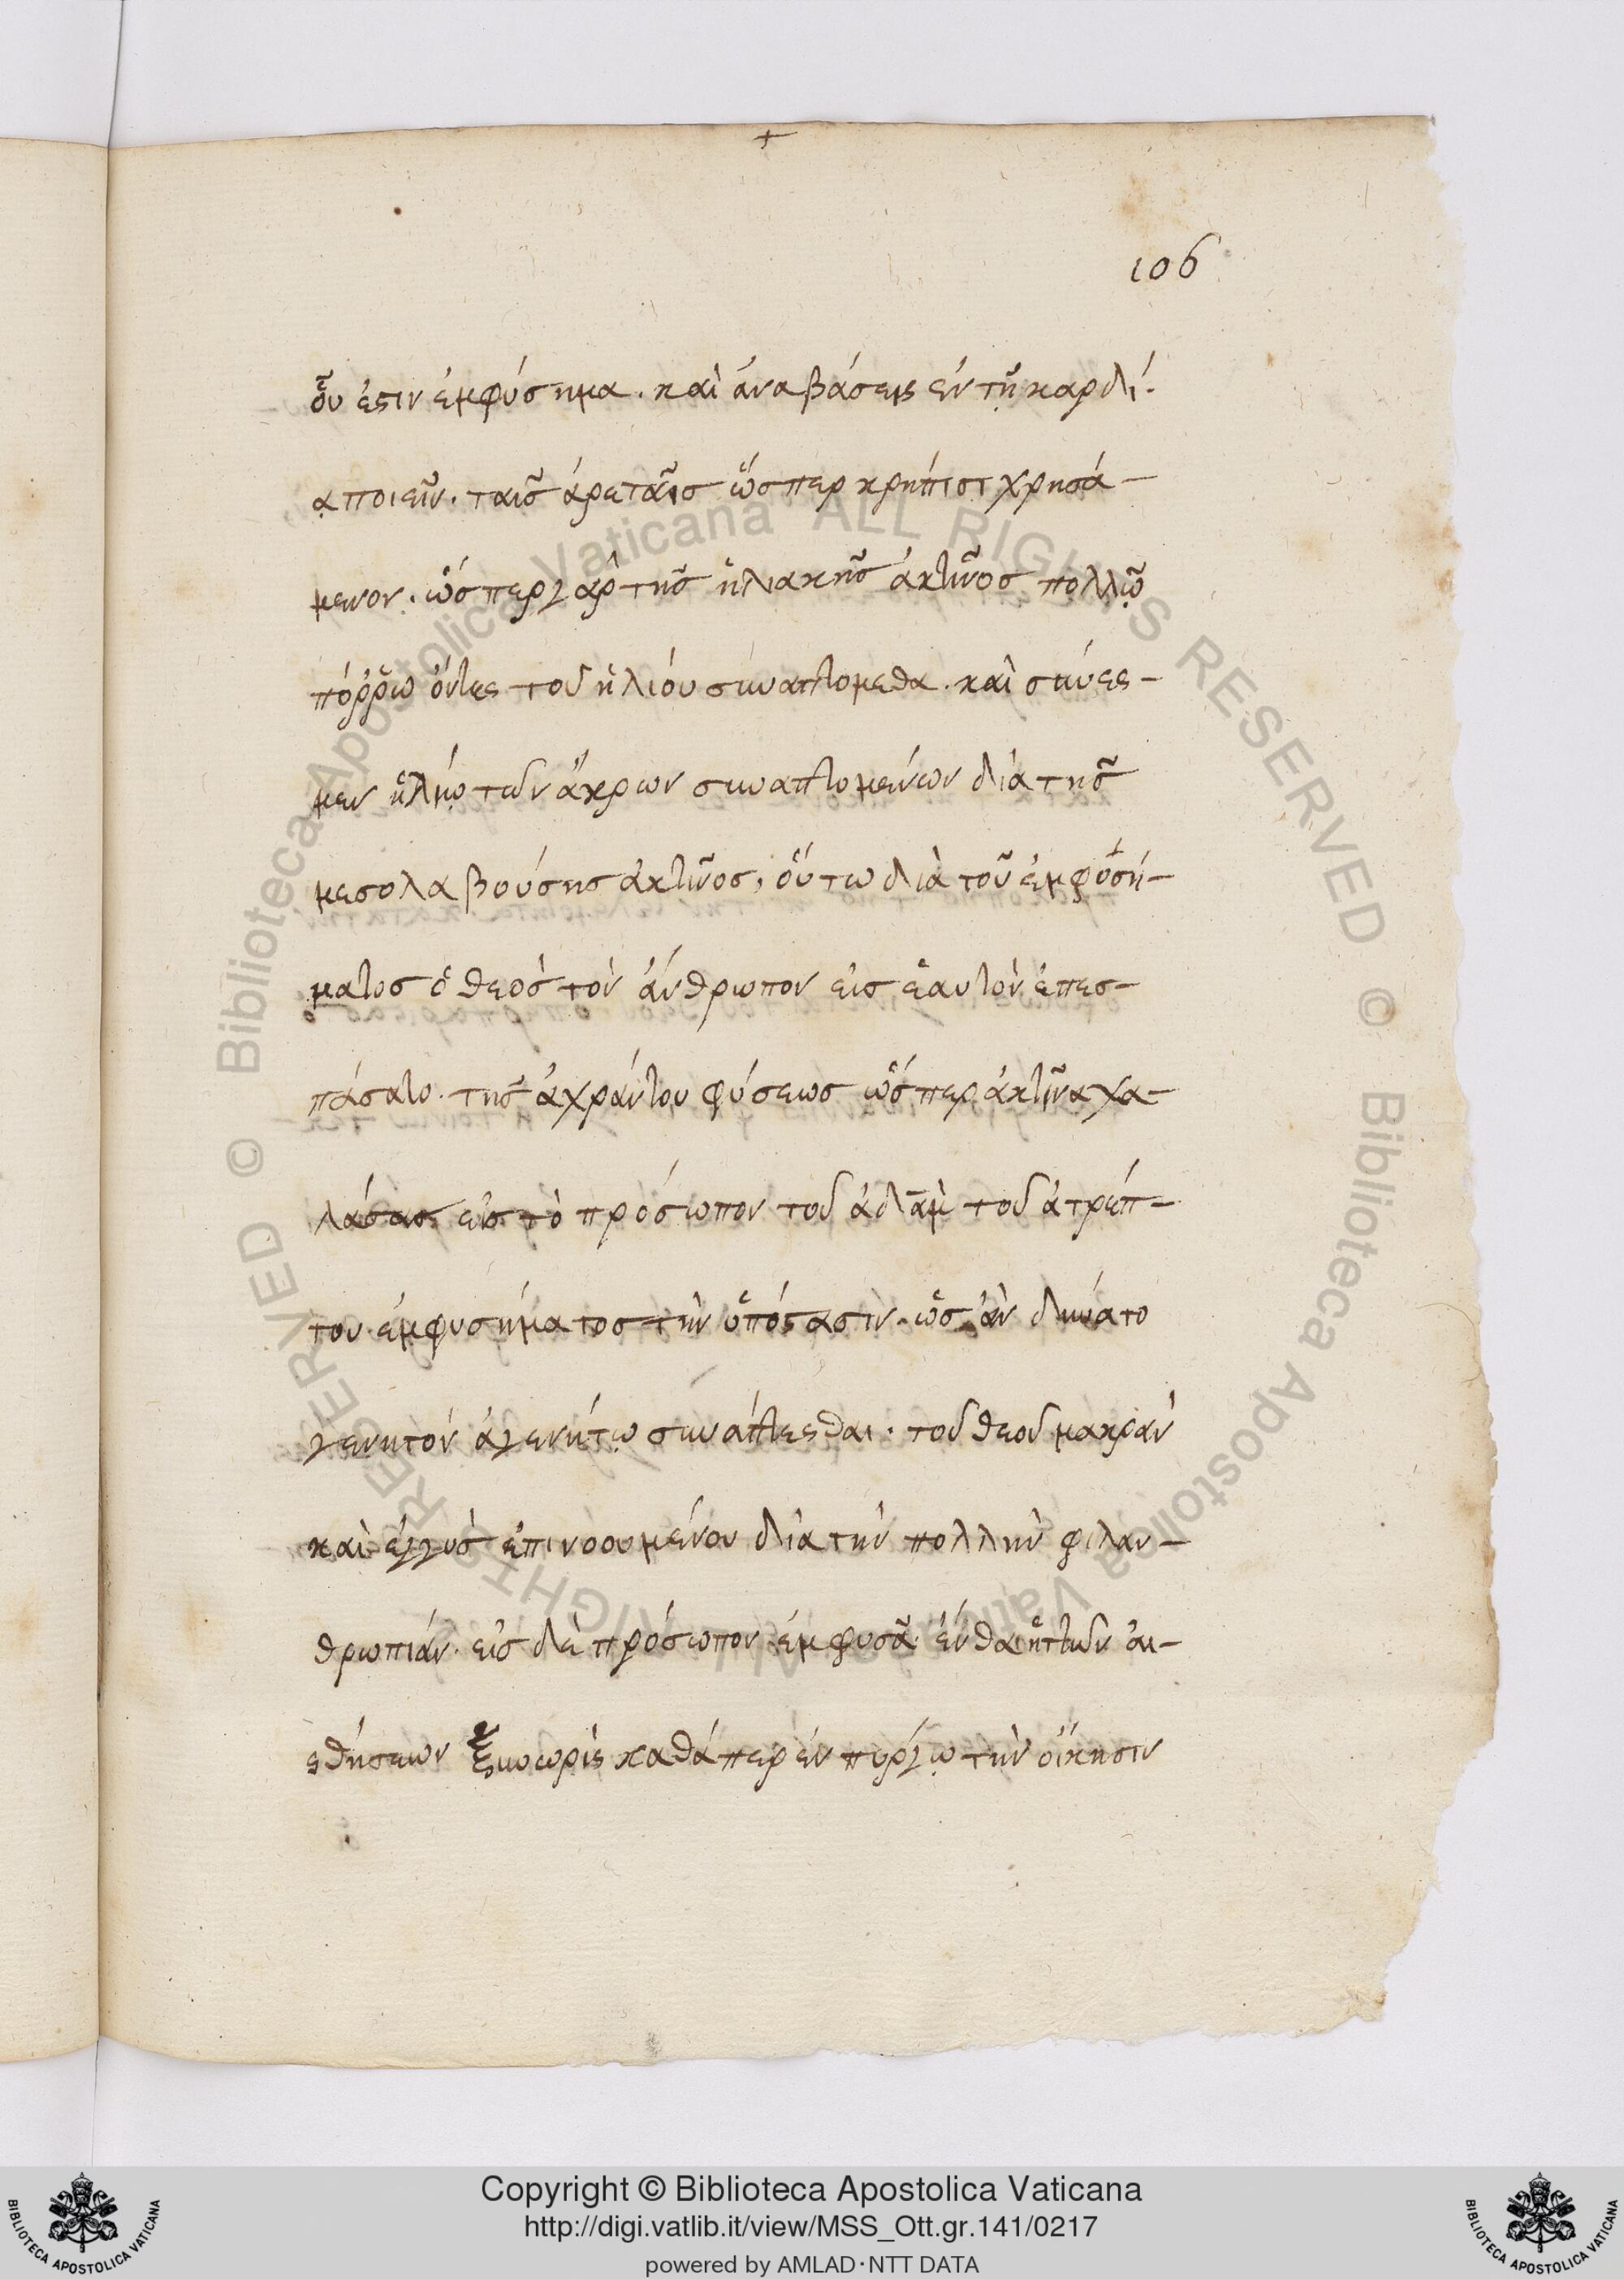 106
οὗ ἐστιν ἐμφύσημα. καὶ ἀναβάσεις ἐν τῇ καρδί-
ᾳ ποιεῖν. ταῖς ἀρεταῖς ὥσπερ κρηπῖσι χρησά-
μενον. ὥσπερ γὰρ τῆς ἡλιακῆς ἀκτῖνος πολλῷ
πόῤῥω ὄντες τοῦ ἡλίου συναπτόμεθα. καὶ σύνεσ-
μεν ἡλίῳ τῶν ἄκρων συναπτομένων διὰ τῆς
μεσολαβούσης ἀκτῖνος, οὕτω διὰ τοῦ ἐμφυσή-
ματος ὁ θεὸς τὸν ἄνθρωπον εἰς ἑαυτὸν ἐπεσ-
πάσατο. τῆς ἀχράντου φύσεως ὥσπερ ἀκτῖνα χα-
λάσας εἰς τὸ πρόσωπον τοῦ ἀδὰμ τοῦ ἀτρέπ-
του ἐμφυσήματος τὴν ὑπόστασιν. ὡς ἂν δύναιτο
γενητὸν ἀγενήτῳ συνάπτεσθαι. τοῦ θεοῦ μακρὰν
καὶ ἐγγὺς ἐπινοουμένου διὰ τὴν πολλὴν φιλαν-
θρωπίαν. εἰς δὲ πρόσωπον ἐμφυσᾷ. ἔνθα ἡ τῶν αἰ-
σθήσεων ξυνωρὶς καθάπερ ἐν πύργῳ τὴν οἴκησιν
Copyright © Biblioteca Apostolica Vaticana
http://digi.vatlib.it/view/MSS_Ott.gr.141/0217
powered by AMLAD·NTT DATA
BIBLIOTECA APOSTOLICA VATICANA
BIBLIOTECA APOSTOLICA VATICANA
© Biblioteca Apostolica Vaticana ALL RIGHTS RESERVED
© Biblioteca Apostolica Vaticana ALL RIGHTS RESERVED